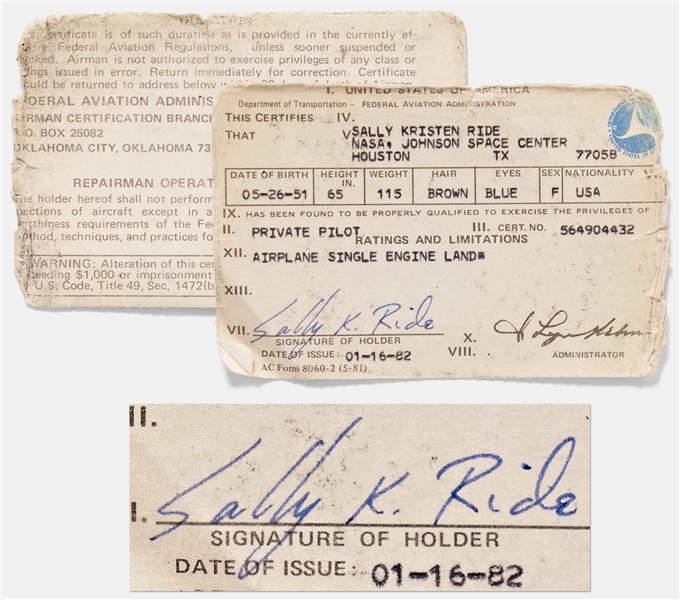 DURATION
certificate is of such duration as is provided in the currently ef-
Federal Aviation Regulations, Unless sooner suspended or
oked. Airman is not authorized to exercise privileges of any class or
ings issued in error. Return immediately for correction. Certificate
ould be returned to address below
DERAL AVIATION ADMINIS
RMAN CERTIFICATION BRANCH
O. BOX 25082
KLAHOMA CITY, OKLAHOMA 73
REPAIRMAN OPERAT
he holder hereof shall not perform
ections of aircraft except in a
rthiness requirements of the Fed
thod, techniques, and practices fo
WARNING: Alteration of this cer
ceeding $1,000 or imprisonment
U.S. Code, Title 49, Sec. 1472(b
I. UNITED STATES OF AMERICA
Department of Transportation - FEDERAL AVIATION ADMINISTRATION
THIS CERTIFIES IV.
THAT V. SALLY KRISTEN RIDE
NASA, JOHNSON SPACE CENTER
HOUSTON TX 77058
DATE OF BIRTH HEIGHT IN. WEIGHT HAIR EYES SEX NATIONALITY VI.
05-26-51 65 115 BROWN BLUE F USA
IX. HAS BEEN FOUND TO BE PROPERLY QUALIFIED TO EXERCISE THE PRIVILEGES OF
II. PRIVATE PILOT III. CERT. NO. 564904432
RATINGS AND LIMITATIONS
XII. AIRPLANE SINGLE ENGINE LAND*
XIII.
VII. Sally K. Ride X.
SIGNATURE OF HOLDER
DATE OF ISSUE: 01-16-82 VIII. ADMINISTRATOR
AC Form 8060-2 (5-81)
II.
I. Sally K. Ride
SIGNATURE OF HOLDER
DATE OF ISSUE: 01-16-82